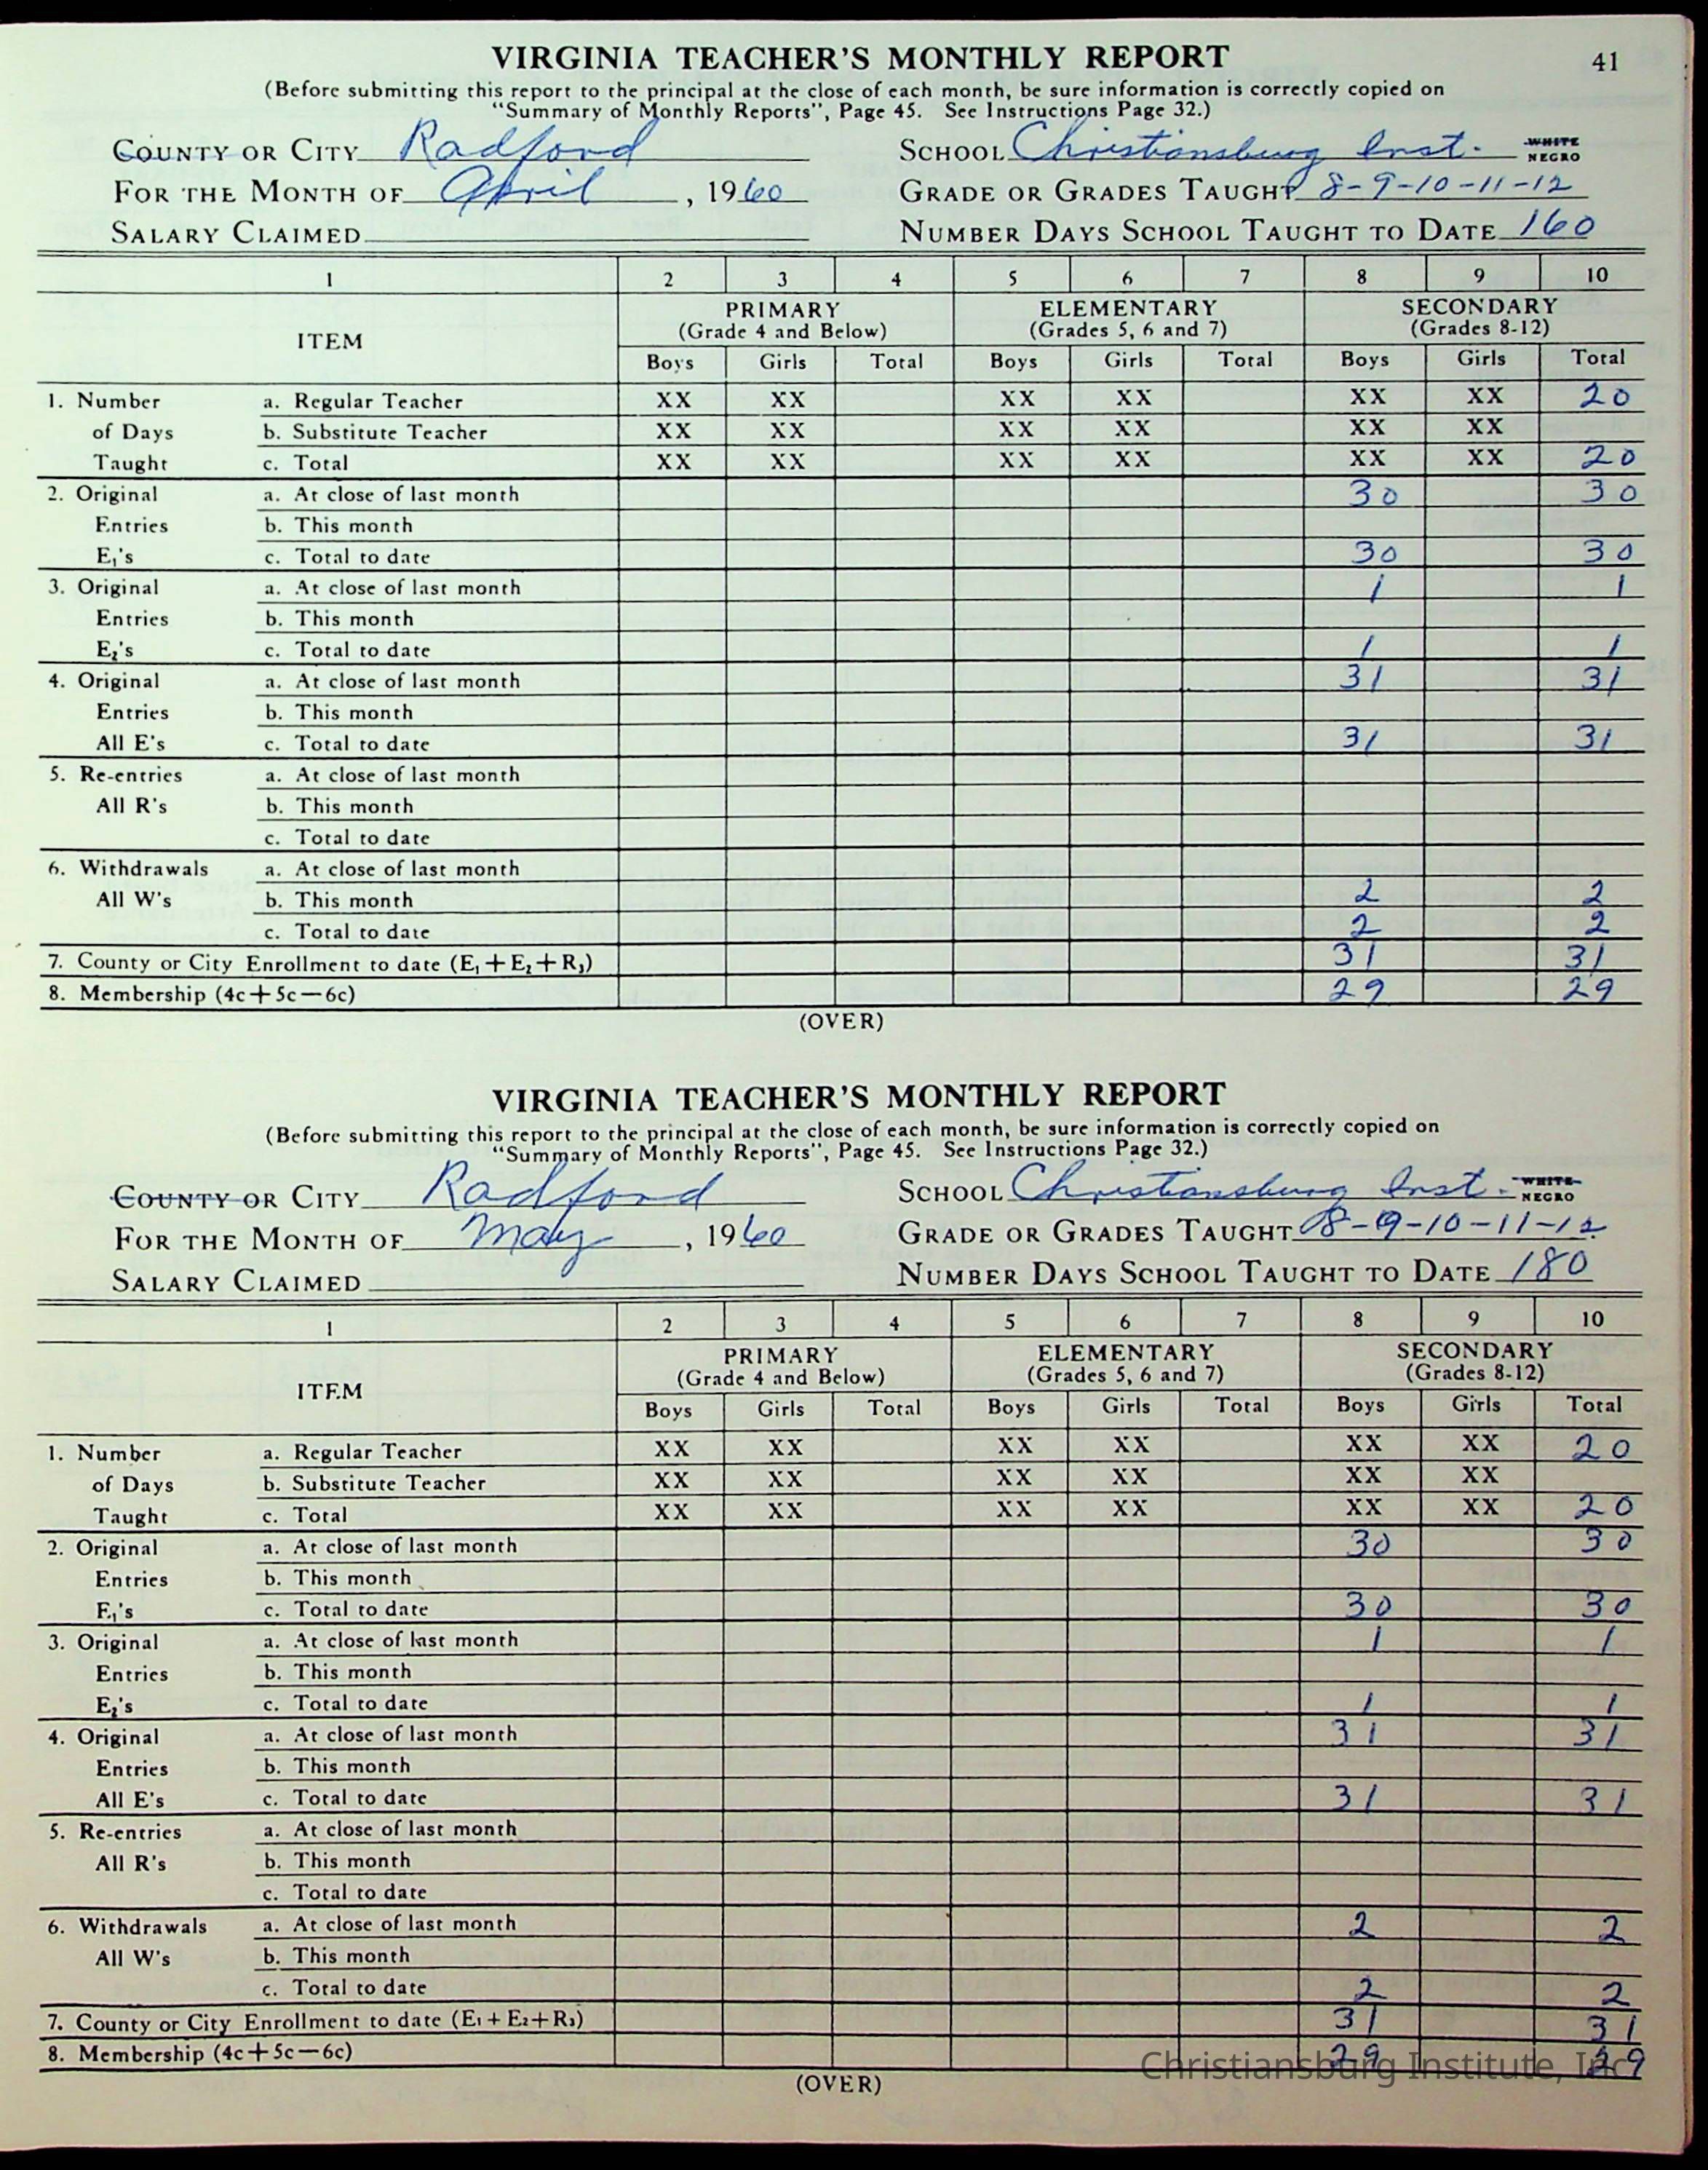 VIRGINIA TEACHER'S MONTHLY REPORT 41
(Before submitting this report to the principal at the close of each month, be sure information is correctly copied on
"Summary of Monthly Reports", Page 45. See Instructions Page 32.)
COUNTY OR CITY Radford SCHOOL Christiansburg Inst. WHITE NEGRO
FOR THE MONTH OF April, 1960 GRADE OR GRADES TAUGHT 8-9-10-11-12
SALARY CLAIMED NUMBER DAYS SCHOOL TAUGHT TO DATE 160
1 2 3 4 5 6 7 8 9 10
PRIMARY ELEMENTARY SECONDARY
ITEM (Grade 4 and Below) (Grades 5, 6 and 7) (Grades 8-12)
Boys Girls Total Boys Girls Total Boys Girls Total
1. Number a. Regular Teacher XX XX XX XX XX XX 20
of Days b. Substitute Teacher XX XX XX XX XX XX
Taught c. Total XX XX XX XX XX XX 20
2. Original a. At close of last month 30 30
Entries b. This month
E₁'s c. Total to date 30 30
3. Original a. At close of last month 1 1
Entries b. This month
E₂'s c. Total to date 1 1
4. Original a. At close of last month 31 31
Entries b. This month
All E's c. Total to date 31 31
5. Re-entries a. At close of last month
All R's b. This month
c. Total to date
6. Withdrawals a. At close of last month
All W's b. This month 2 2
c. Total to date 2 2
7. County or City Enrollment to date (E₁+E₂+R₃) 31 31
8. Membership (4c+5c—6c) 29 29
(OVER)
VIRGINIA TEACHER'S MONTHLY REPORT
(Before submitting this report to the principal at the close of each month, be sure information is correctly copied on
"Summary of Monthly Reports", Page 45. See Instructions Page 32.)
COUNTY OR CITY Radford SCHOOL Christiansburg Inst. WHITE NEGRO
FOR THE MONTH OF May, 1960 GRADE OR GRADES TAUGHT 8-9-10-11-12
SALARY CLAIMED NUMBER DAYS SCHOOL TAUGHT TO DATE 180
1 2 3 4 5 6 7 8 9 10
PRIMARY ELEMENTARY SECONDARY
ITEM (Grade 4 and Below) (Grades 5, 6 and 7) (Grades 8-12)
Boys Girls Total Boys Girls Total Boys Girls Total
1. Number a. Regular Teacher XX XX XX XX XX XX 20
of Days b. Substitute Teacher XX XX XX XX XX XX
Taught c. Total XX XX XX XX XX XX 20
2. Original a. At close of last month 30 30
Entries b. This month
E₁'s c. Total to date 30 30
3. Original a. At close of last month 1 1
Entries b. This month
E₂'s c. Total to date 1 1
4. Original a. At close of last month 31 31
Entries b. This month
All E's c. Total to date 31 31
5. Re-entries a. At close of last month
All R's b. This month
c. Total to date
6. Withdrawals a. At close of last month 2 2
All W's b. This month
c. Total to date 2 2
7. County or City Enrollment to date (E₁+E₂+R₃) 31 31
8. Membership (4c+5c—6c) 29 29
Christiansburg Institute, Inc.
(OVER)